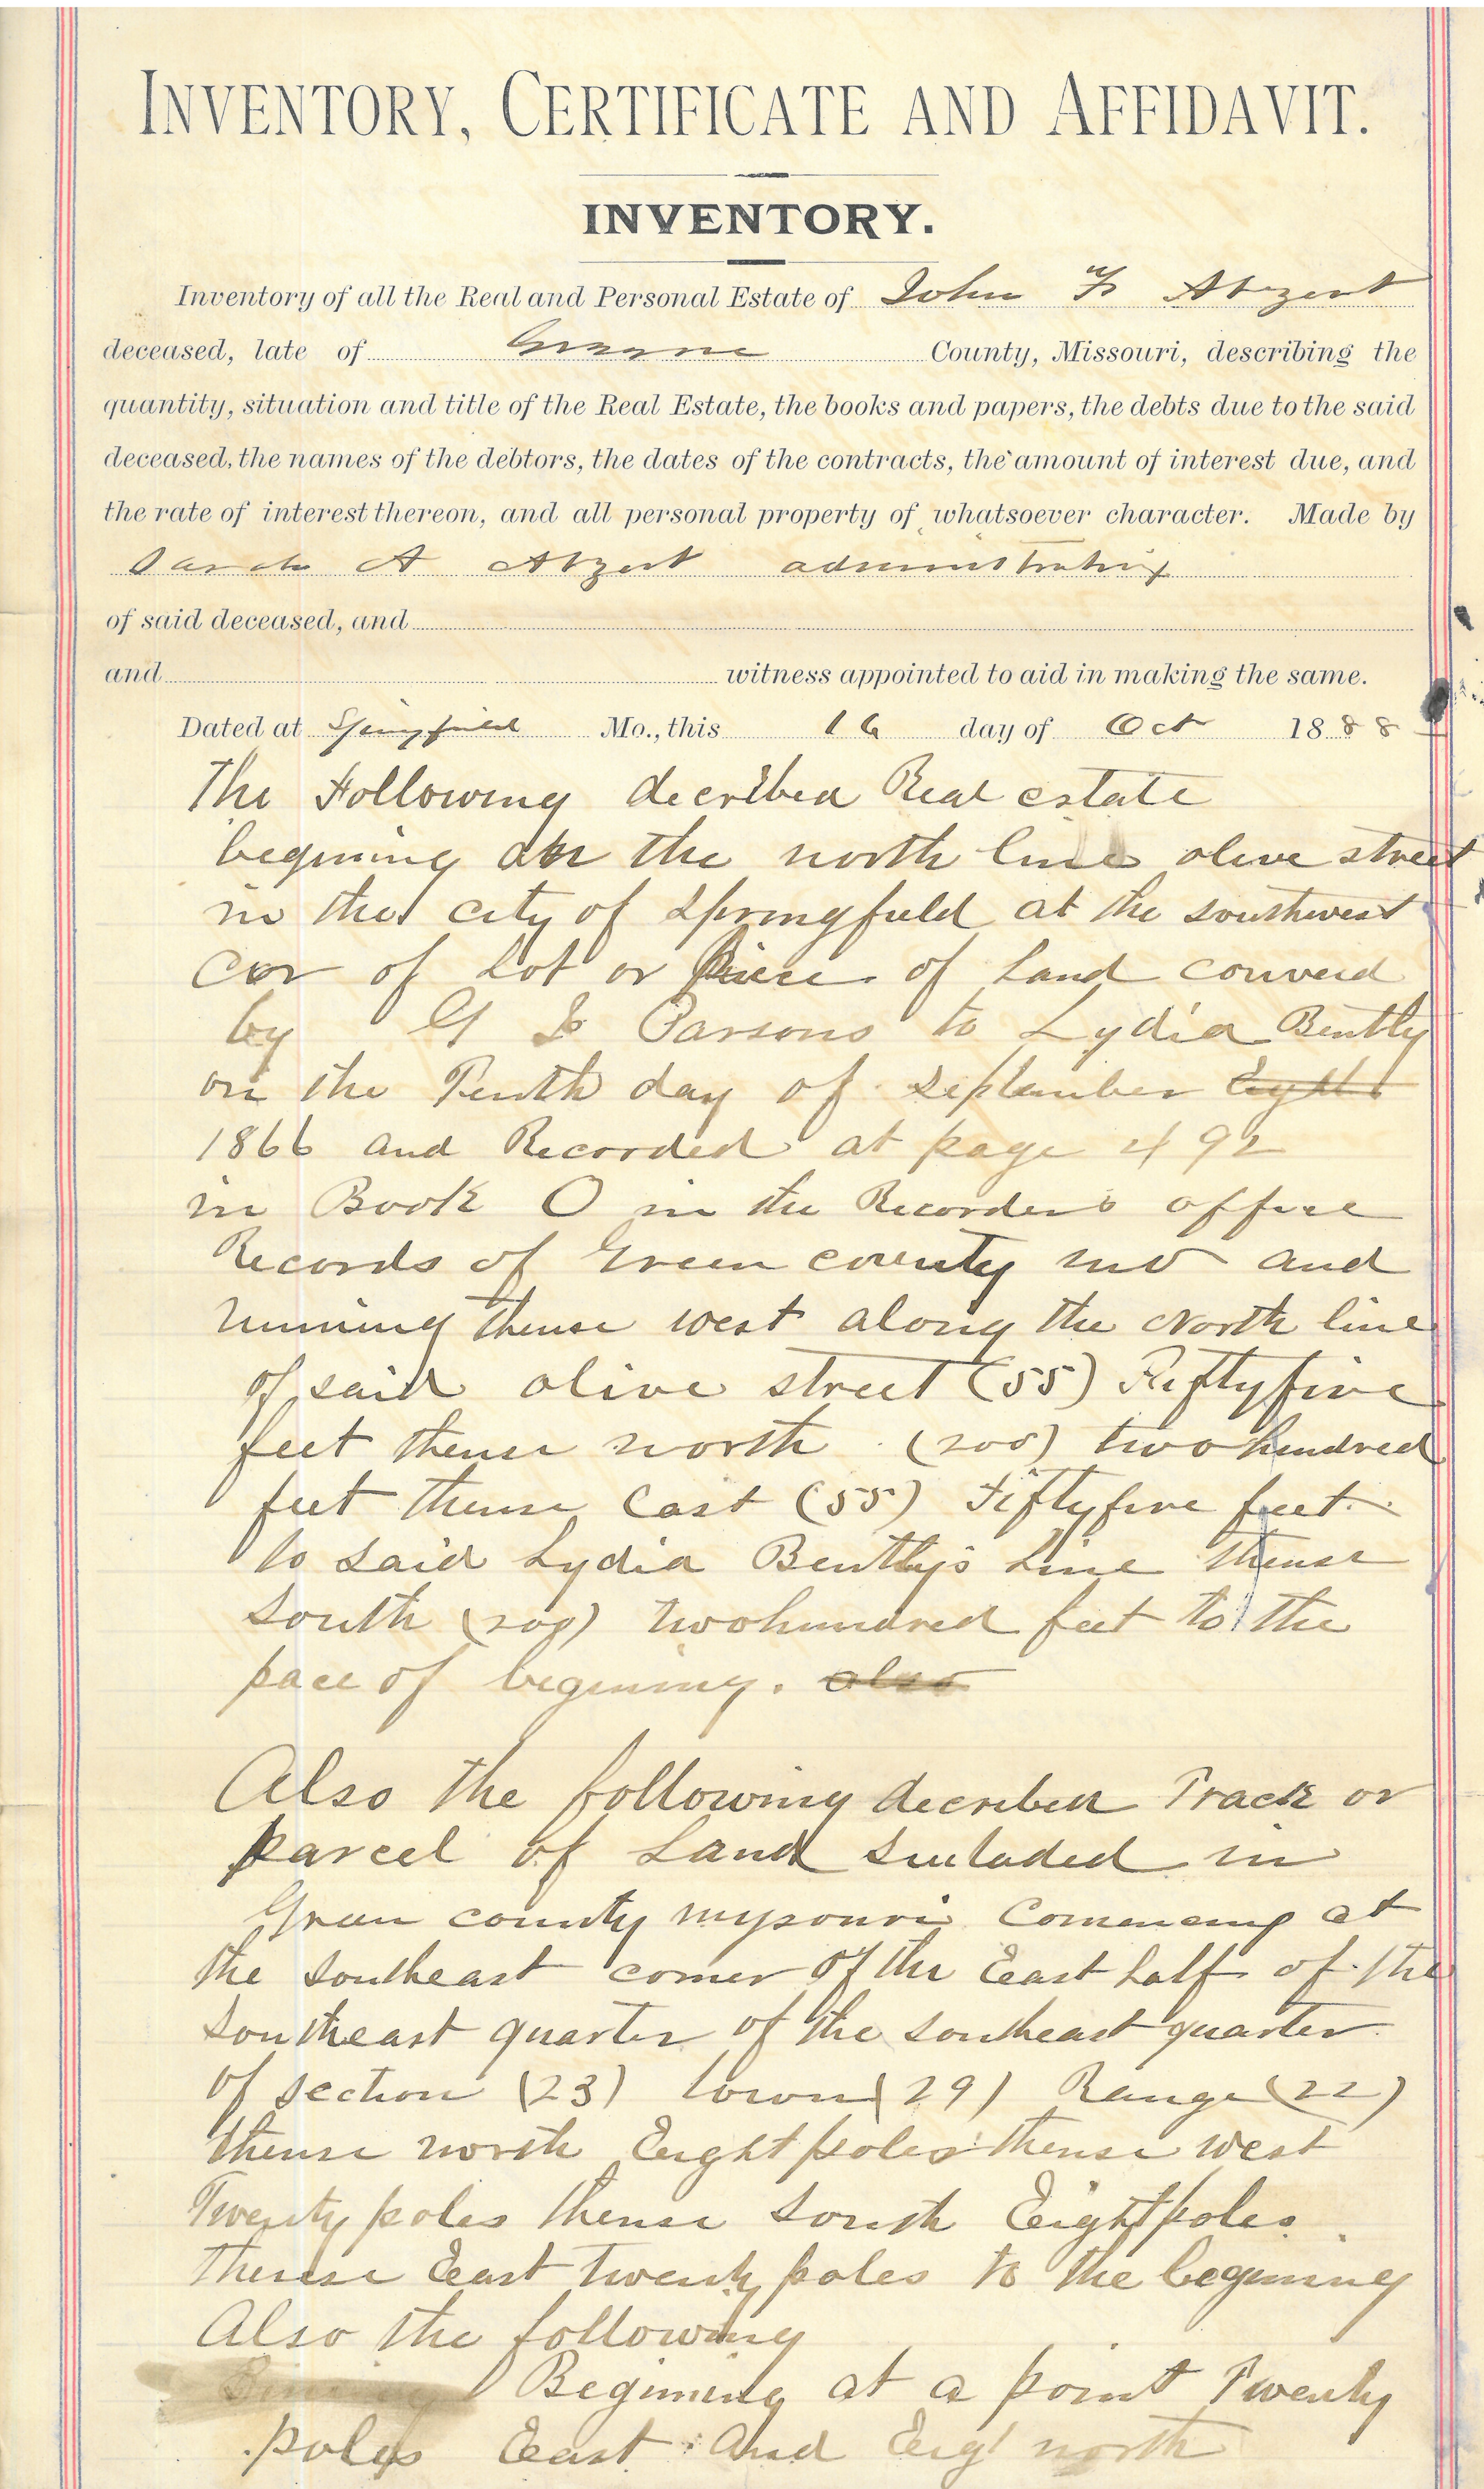 INVENTORY, CERTIFICATE AND AFFIDAVIT.
INVENTORY.
Inventory of all the Real and Personal Estate of John F Atzert
deceased, late of Greene County, Missouri, describing the
quantity, situation and title of the Real Estate, the books and papers, the debts due to the said
deceased, the names of the debtors, the dates of the contracts, the amount of interest due, and
the rate of interest thereon, and all personal property of whatsoever character. Made by
Sarah A Atzert administratrix
of said deceased, and
and witness appointed to aid in making the same.
Dated at Springfield Mo., this 16 day of Oct 1888
The Following decribed Real estate
begining on the north line olive street
in the city of Springfield at the southwest
Cor of Lot or Piece of Land converd
by G Parsons to Lydia Bently
on the Tenth day of September
1866 and Recorded at page 492
in Book O in the Recorders office
Records of Green county mo and
running thense west along the North line
of said olive street (55) Fiftyfive
feet thense north (200) two hundred
feet thense East (55) Fiftyfive feet
to said Lydia Bently's Line thense
South (200) twohundred feet to the
pace of begining. also
Also the following decribed Track or
parcel of Land in
Green county myssouri Comencing at
the southeast corner of the East half of the
Southeast quarter of the southeast quarter
of section (23) town (29) Range (22)
thense north Eight poles thense west
Twenty poles thense South Eight poles
thense East twenty poles to the begining
Also the following
Begining at a point Twenty
poles East And Eigt north